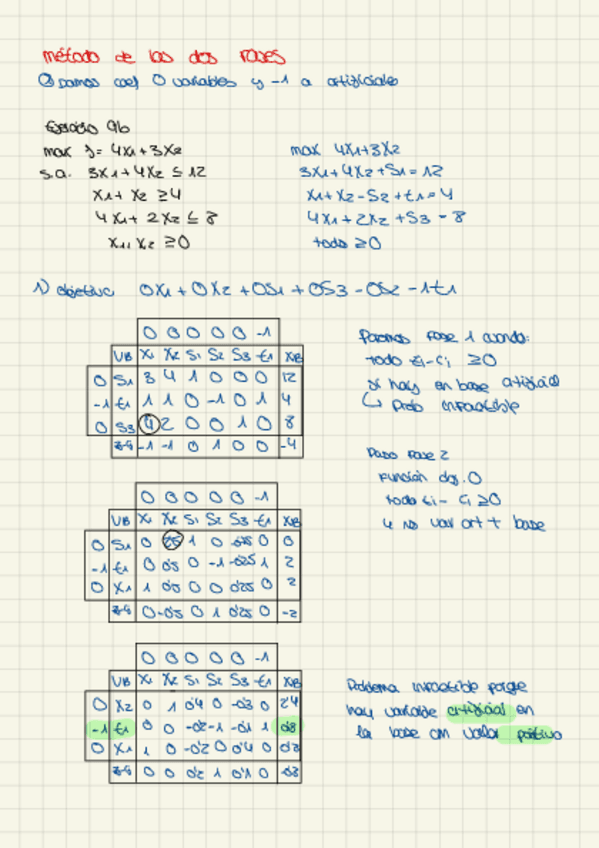 método de las dos fases
Damos coef 0 variables y -1 a artificiales
Ejercicio 9b
max z = 4x1+3x2
s.a. 3x1+4x2 ≤ 12
x1+ x2 ≥4
4x1+ 2x2 ≤ 8
x1, x2 ≥0
max 4x1+3x2
3x1+4x2+S1=12
x1+x2-S2+t1=4
4x1+2x2+S3=8
todo ≥0
1) objetivo 0x1+0x2+0S1+0S3-0S2-1t1
0 0 0 0 0 -1
VB X1 X2 S1 S2 S3 t1 XB
0 S1 3 4 1 0 0 0 12
-1 t1 1 1 0 -1 0 1 4
0 S3 4 2 0 0 1 0 8
-1 -1 0 1 0 0 -4
Paramos fase 1 cuando:
todo zi-ci ≥0
si hay en base artificial
↳ prob infactible
Paso fase 2
Función obj. 0
todo zi-ci ≥0
y no var art + base
0 0 0 0 0 -1
VB X1 X2 S1 S2 S3 t1 XB
0 S1 0 1 0 0
-1 t1 0 0'5 0 -1 -0'25 1 2
0 X1 1 0'5 0 0 0'25 0 2
0 -0'5 0 1 0'25 0 -2
0 0 0 0 0 -1
VB X1 X2 S1 S2 S3 t1 XB
0 X2 0 1 0'4 0 -0'3 0 2'4
-1 t1 0 0 -0'2 -1 -0'1 1 0'8
0 X1 1 0 -0'2 0 0'4 0 0'8
0 0 0'2 1 0'1 0 -0'8
Problema infactible porque
hay variable artificial en
la base con valor positivo